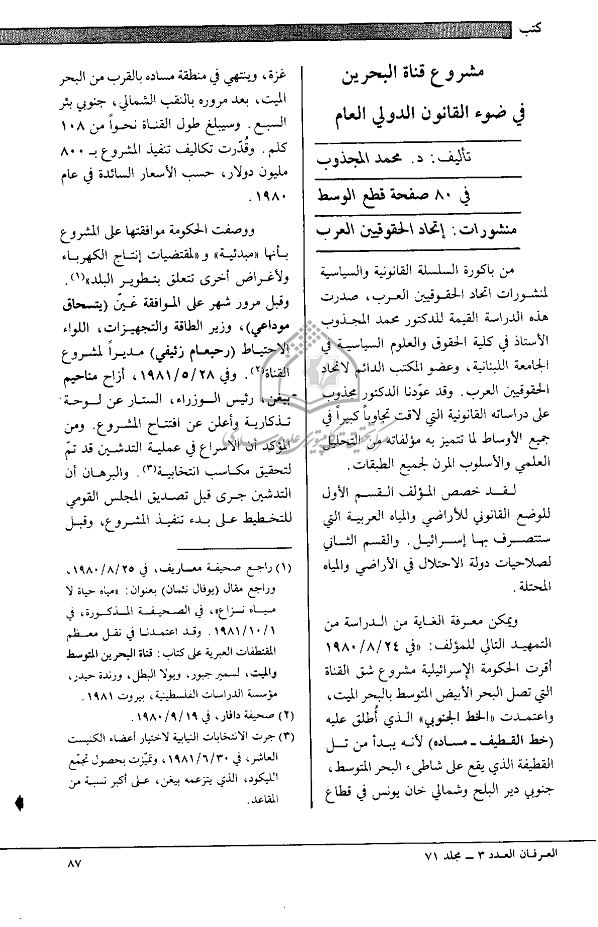 كتب
مشروع قناة البحرين
في ضوء القانون الدولي العام
تأليف: د. محمد المجذوب
في ٨٠ صفحة قطع الوسط
منشورات: إتحاد الحقوقيين العرب
من باكورة السلسلة القانونية والسياسية
لمنشورات اتحاد الحقوقيين العرب، صدرت
هذه الدراسة القيمة للدكتور محمد المجذوب
الأستاذ في كلية الحقوق والعلوم السياسية في
الجامعة اللبنانية، وعضو المكتب الدائم لاتحاد
الحقوقيين العرب. وقد عوّدنا الدكتور مجذوب
على دراساته القانونية التي لاقت تجاوباً كبيراً في
جميع الأوساط لما تتميز به مؤلفاته من التحليل
العلمي والأسلوب المرن لجميع الطبقات.
لـقـد خصص المـؤلف القـسم الأول
للوضع القانوني للأراضي والمياه العربية التي
ستتصرف بها إسرائيل. والقسم الثاني
لصلاحيات دولة الاحتلال في الأراضي والمياه
المحتلة.
ويمكن معرفة الغاية من الدراسة من
التمهيد التالي للمؤلف: «في ١٩٨٠/٨/٢٤
أقرت الحكومة الإسرائيلية مشروع شق القناة
التي تصل البحر الأبيض المتوسط بالبحر الميت،
واعتمدت «الخط الجنوبي» الـذي أُطلق عليه
(خط القطيف ـ مساده) لأنه يبدأ من تـل
القطيفة الذي يقع على شاطىء البحر المتوسط،
جنوبي دير البلح وشمالي خان يونس في قطاع
غزة، وينتهي في منطقة مساده بالقرب من البحر
الميت، بعد مروره بالنقب الشمالي، جنوبي بئر
السبع. وسيبلغ طول القناة نحواً من ١٠٨
كلم. وقُدّرت تكاليف تنفيذ المشروع بـ ٨٠٠
مليون دولار، حسب الأسعار السائدة في عام
١٩٨٠.
ووصفت الحكومة موافقتها على المشروع
بـأنهـا «مبدئيـة» و «لمقتضيات إنتاج الكهرباء
ولأغـراض أخرى تتعلق بـتطويـر البلد»(١).
وقبل مرور شهر على المـوافقة عَيّنَ (يتسحاق
موداعي)، وزير الطاقة والتجهيزات، اللواء
الاحتياط (رحبعـام زئيفي) مديـراً لمشروع
القناة(٢). وفي ١٩٨١/٥/٢٨، أزاح مناحيم
بيغن، رئيس الـوزراء، الستار عن لـوحـة
تـذكارية وأعلن عن افتتاح المشروع. ومن
المؤكد أن الأسراع في عمليـة التدشين قد تـمّ
لتحقيق مكاسب انتخابية(٣). والبرهان أن
التدشين جرى قبل تصديق المجلس القومي
للتخطيط على بدء تنفيذ المشروع، وقبـل
(١) راجع صحيفة معاريف، في ١٩٨٠/٨/٢٥،
وراجع مقال (يوفال نئمان) بعنوان: «مياه حياة لا
ميـاه نـزاع»، في الصحيفـة المـذكـورة، في
١٩٨١/١٠/١. وقـد اعتمدنـا في نقل معـظم
المقتطفات العبرية على كتاب: قناة البحرين المتوسط
والميت، لسمير جبور، ويولا البطل، ورندة حيدر،
مؤسسة الدراسات الفلسطينية، بيروت ١٩٨١.
(٢) صحيفة دافار، في ١٩٨٠/٩/١٩.
(٣) جرت الانتخابات النيابية لاختيار أعضاء الكنيست
العاشر، في ١٩٨١/٦/٣٠، وتميّزت بحصول تجمّع
الليكود، الذي يتزعمه بيغن، على أكبر نسبة من
المقاعد.
العـرفـان العـدد ٣ ـ مجلد ٧١
٨٧